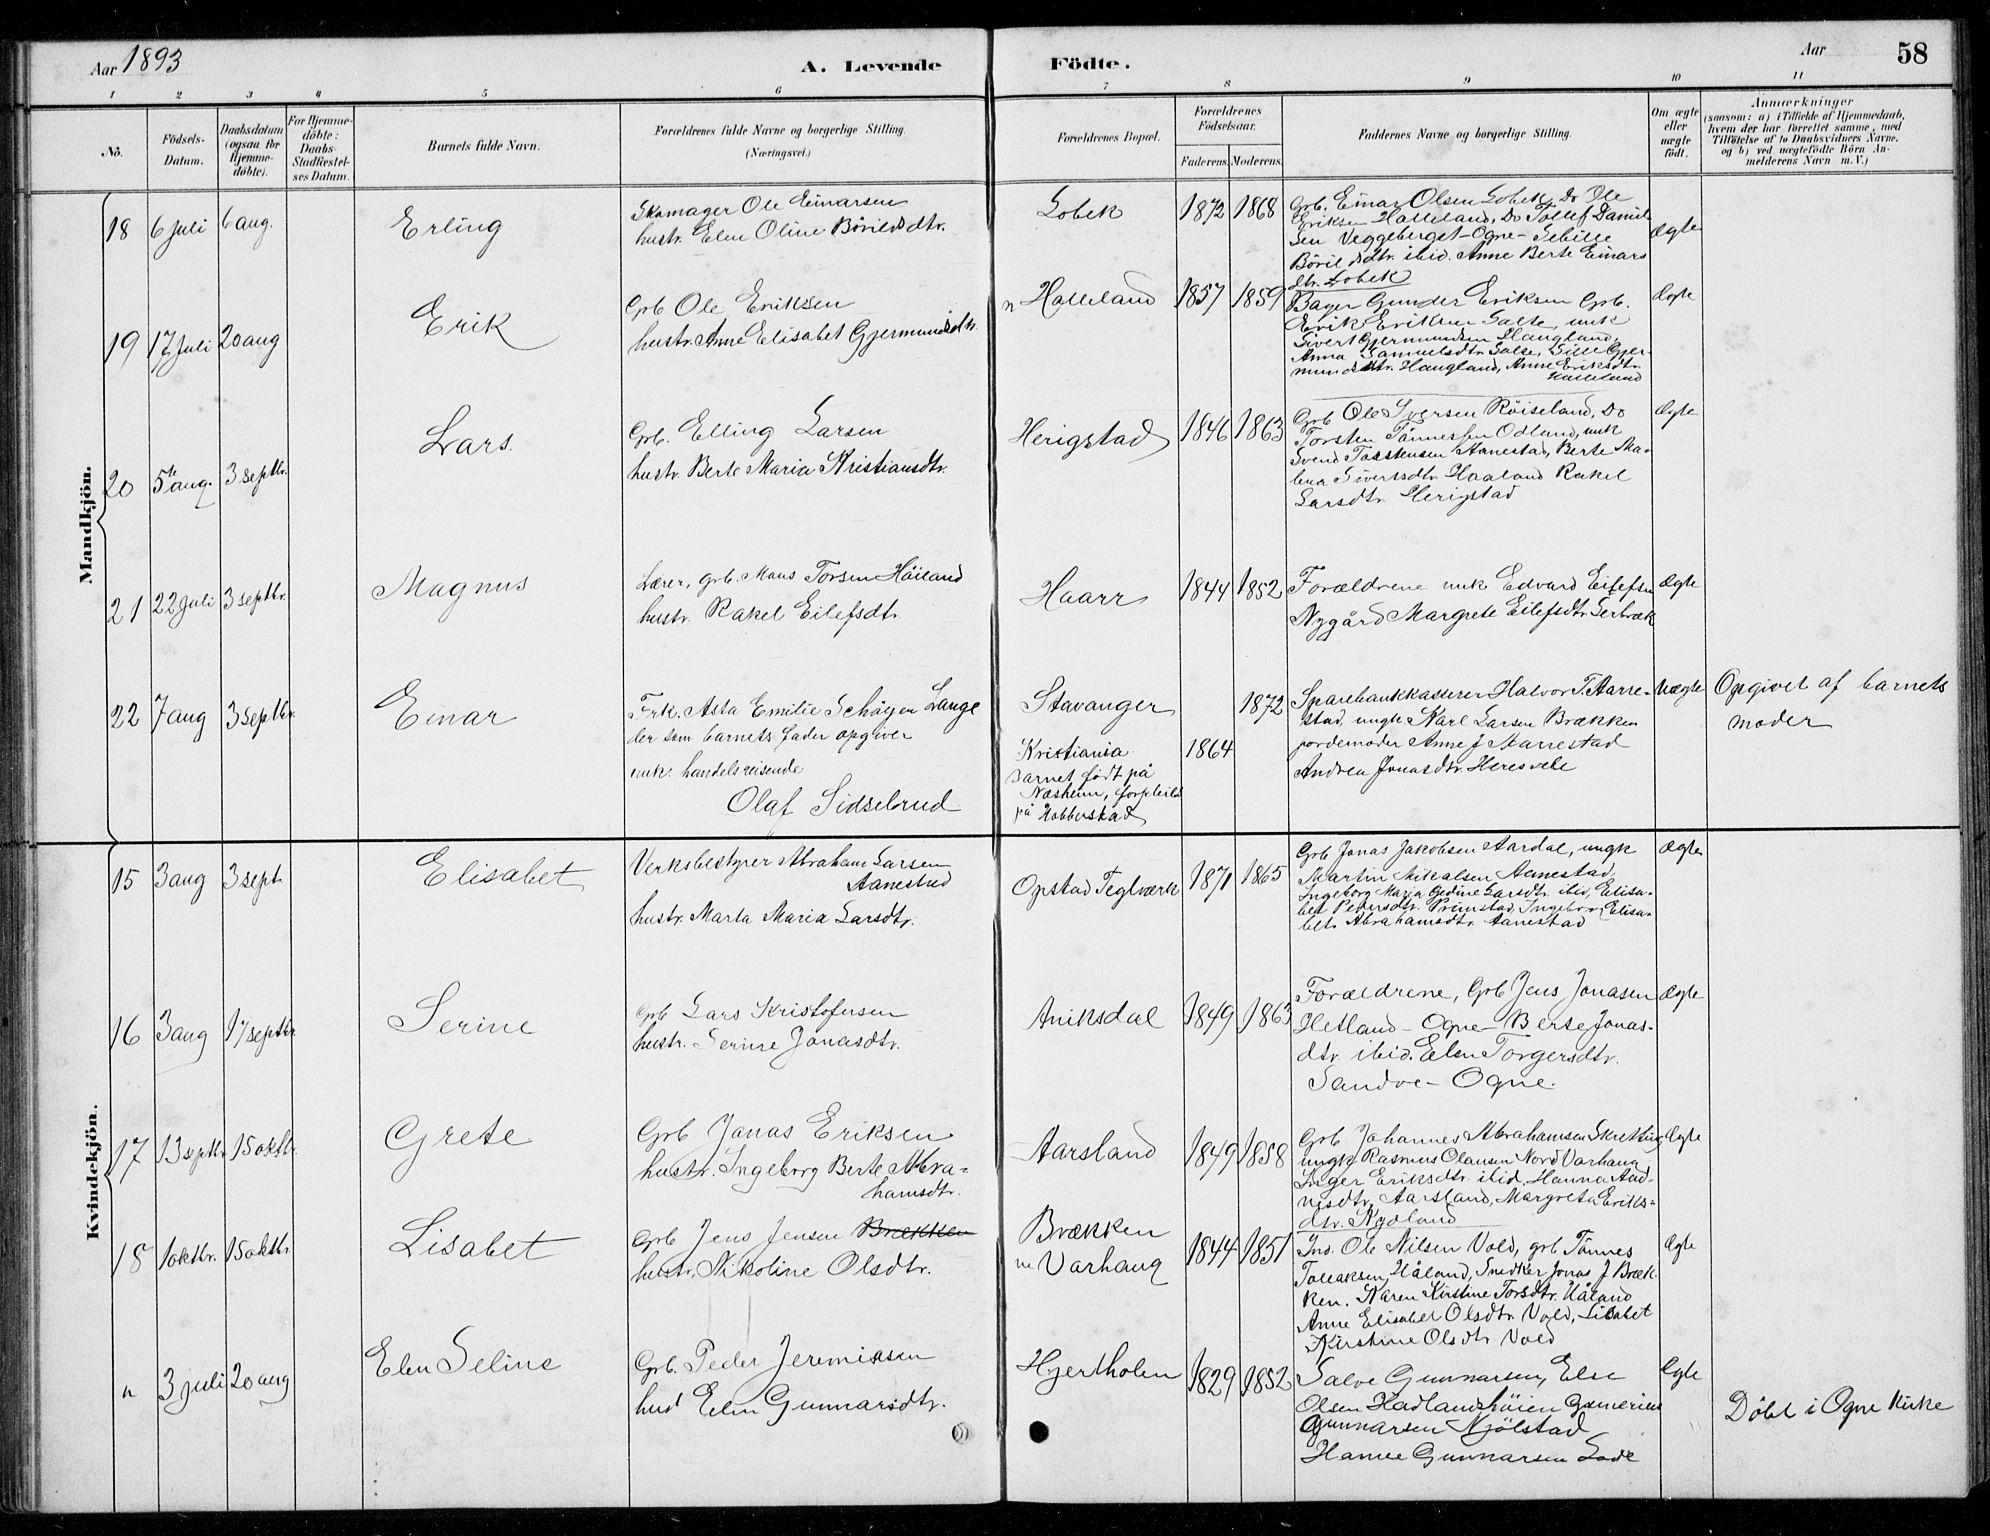 Aar 1893
A. Levende Födte.
Aar
58
1 2 3 4 5 6 7 8 9 10 11
No.
Födsels-Datum.
Daabsdatum (ogsaa for Hjemme-döbte).
For Hjemme-döbte: Daabs-Stadfestel-ses Datum.
Barnets fulde Navn.
Forældrenes fulde Navne og borgerlige Stilling.
(Næringsvei.)
Forældrenes Bopæl.
Forældrenes Födselsaar.
Faderens. Moderens.
Faddernes Navne og borgerlige Stilling.
Om ægte eller uægte födt.
Anmærkninger
(saasom: a) i Tilfælde af Hjemmedaab,
hvem der har forrettet samme, med
Tilföielse af to Daabsvidners Navne.
og b) ved uægtefödte Börn An-
melderens Navn m.V.)
Mandkjön.
18 6 juli 6 aug. Erling
Skomager Ole Einarsen
hustr. Elen Oline Börildsdtr.
Lobek 1872 1868
Grb. Einar Olsen Lobek, Do Ole
Eriksen Halleland, Do Tollef Daniel-
sen Veggeberget - Ogne - Sibille
Börildsdtr. ibid. Anne Berte Einars
dtr. Lobek
Ægte
19 17 Juli 20 aug Erik
Grb Ole Eriksen
hustr. Anne Elisabet Gjermundsdtr.
n Halleland 1857 1859
Bager Gunder Eriksen Grb.
Erik Eriksen Salte, unk
Sivert Gjermundsen Haugland,
Anna Samuelsdtr Salte, Sille Gjer-
mundsdtr. Haugland, Anne Eriksdtr.
Halleland
Ægte
20 5te aug. 3 septbr. Lars.
Grb. Elling Larsen
hustr. Berte Maria Kristiansdtr.
Herigstad 1846 1863
Grb Ole Iversen Röiseland, Do
Torsten Tönnessen Odland, unk
Svend Torstensen Aanestad, Berte Ma-
lena Sivertsdtr. Haaland Rakel
Larsdtr. Herigstad
Ægte
21 22 juli 3 septbr. Magnus
Lærer, grb. Maus Torsen Höiland
hustr. Rakel Eilefsdtr.
Haarr 1844 1852
Forældrene unk Edvard Eilefsen
Nygård Margrete Eilefsdtr. Serbræk
Ægte
22 7 aug 3 septbr. Einar
Frk. Asta Emilie Schöyen Lange
der som barnets fader opgiver
unk. handelsreisende
Olaf Sidselrud
Stavanger 1872
Kristiania 1864
Barnet født på
Næsheim, forpleiet
på Hobberstad
Sparebankkasserer Halvor T. Aarre-
stad, ungk Karl Larsen Brækken
jordemoder Anne J Aanestad
Andrea Jonasdtr. Heresvele
Uægte
Opgivet af barnets
moder
Kvindekjön.
15 3 aug 3 sept Elisabet
Verksbestyrer Abraham Larsen
Aanestad
hustr. Marta Maria Larsdtr.
Opstad Teglværk 1871 1865
Grb Jonas Jakobsen Aardal, ungk
Martin Mikalsen Aanestad,
Ingeborg Marja Gedine Larsdtr. ibid, Elisa-
bet Pedersdtr. Primstad, Ingeborg Elisa-
bet Abrahamsdtr. Aanestad
Ægte
16 3 aug 17 septbr. Serine
Grb Lars Kristofersen
hustr. Serine Jonasdtr.
Aniksdal 1849 1863
Forældrene, Grb Jens Jonasen
Hetland - Ogne - Berte Jonas-
dtr. ibid. Elen Torgersdtr.
Sandve - Ogne.
Ægte
17 13 septbr. 15 oktbr. Grete
Grb Jonas Eriksen
hustr. Ingeborg Berte Abra-
hamsdtr.
Aarsland 1849 1858
Grb Johannes Abrahamsen Skretting
ungk Rasmus Olausen Nord Varhaug
Inger Eriksdtr. ibid, Hanna Aad-
nesdtr. Aarsland, Margreta Eriks-
dtr. Nydland
Ægte
18 1 oktbr. 15 oktbr. Lisabet
Grb Jens Jensen Brækken
hustr. Nikoline Olsdtr.
Brækken
Varhaug 1844 1851
Ind. Ole Nilsen Vold, grb Tönnes
Tollaksen, Håland, Snedker Jonas J Bræk-
ken. Karen Kirstine Torsdtr. Håland
Anne Elisabet Olsdtr. Vold, Lisabet
Kirstine Olsdtr. Vold
Ægte
n 3 juli 20 aug Elen Seline
Grb. Peder Jeremiasen
hust Elen Gunnarsdtr.
Hjertholen 1829 1852
Salve Gunnarsen, Else
Olsen Hadlandshöien
Gunnarsen Njölstad
Gunnarsen
Ægte
Döbt i Ogne Kirke